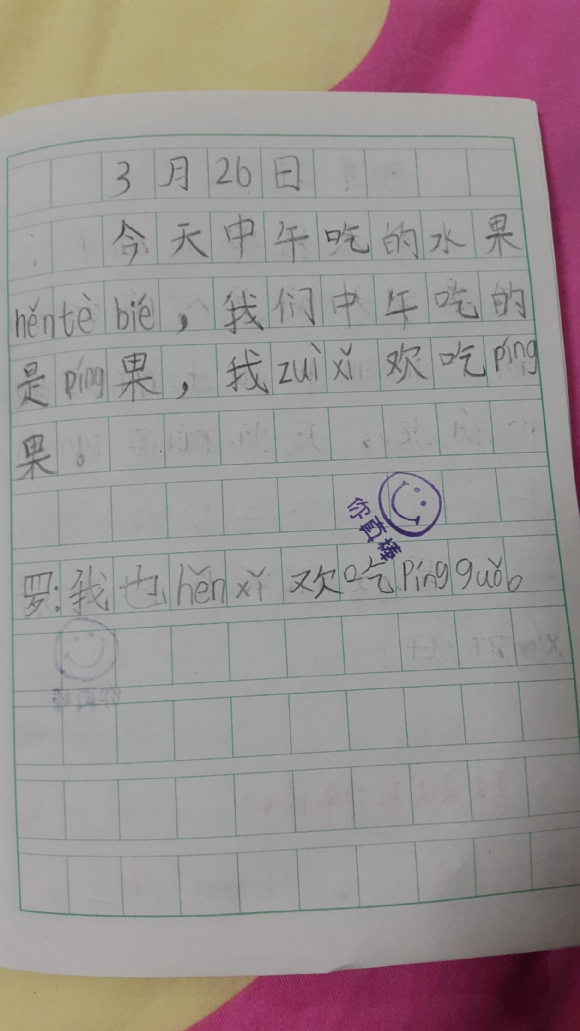 3月26日
今天中午吃的水果
hěntè bié，我们中午吃的
是píng果，我zuì xǐ欢吃píng
果。
你真棒
罗:我也hěn xǐ欢吃píng guǒ。